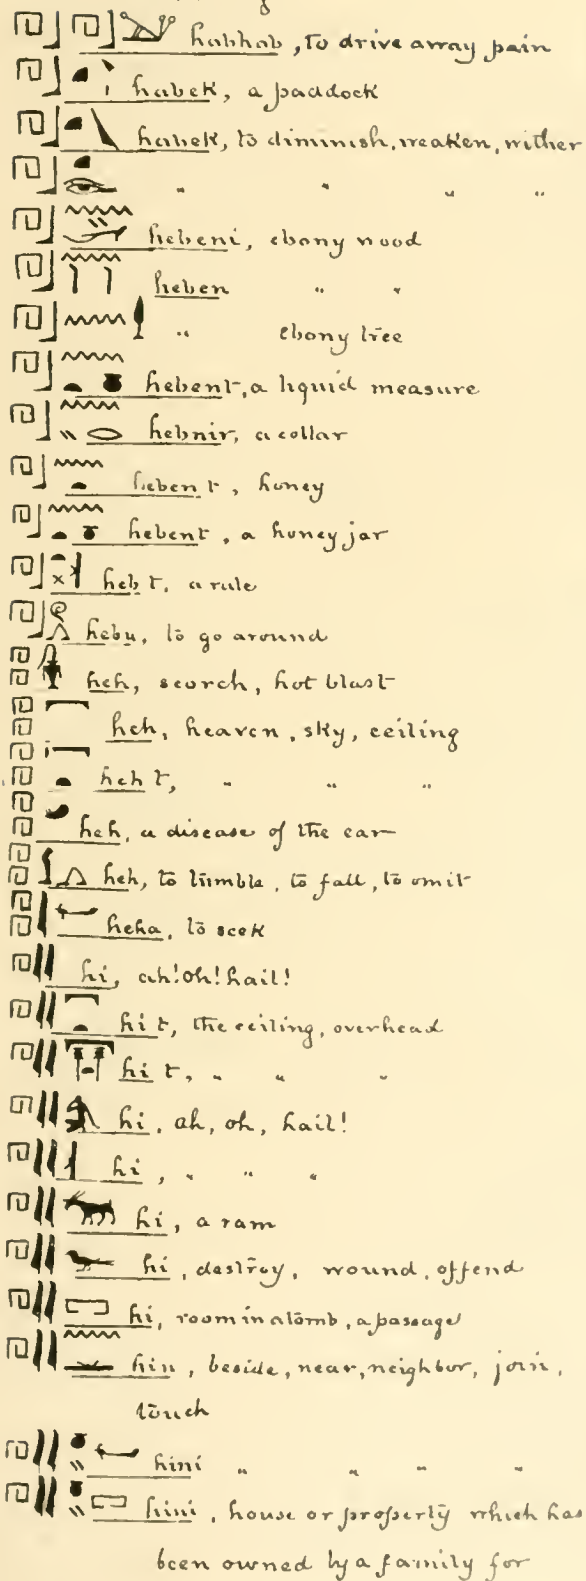 habhab, to drive away pain
habek, a paddock
habek, to diminish, weaken, wither
" " " "
hebeni, ebony wood
heben " "
" ebony tree
hebent, a liquid measure
hebnir, a collar
hebent, honey
hebent, a honey jar
hebt, a rule
hebu, to go around
heh, scorch, hot blast
heh, heaven, sky, ceiling
heht, " " "
heh, a disease of the ear
heh, to tumble, to fall, to omit
heha, to seek
hi, ah! oh! hail!
hit, the ceiling, overhead
hit, " " "
hi, ah, oh, hail!
hi, " " "
hi, a ram
hi, destroy, wound, offend
hi, room in a tomb, a passage
hin, beside, near, neighbor, join,
touch
hini " " " "
hini, house or property which has
been owned by a family for